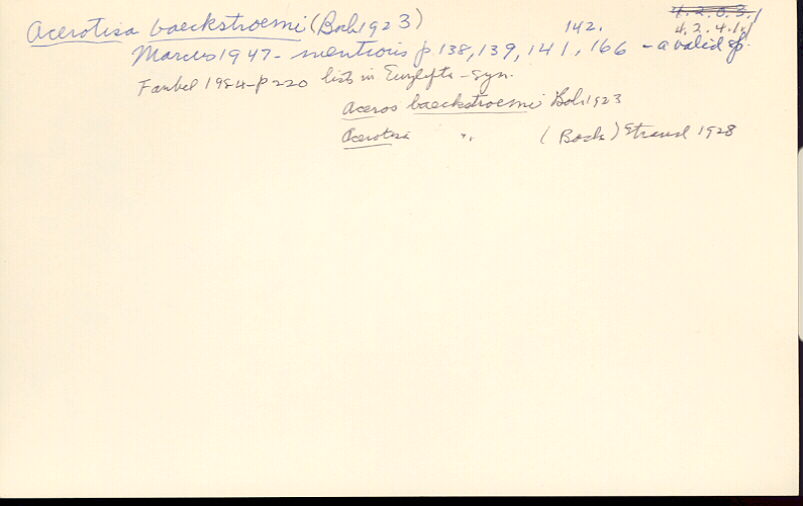 4.2.6.3.1
Acerotisa baeckstroemi (Bock 1923) 142. 4.2.4.1.1
Marcus 1947 - mentions p 138, 139, 141, 166 - a valid sp.
Faubel 1984 - p 220 lists in Eurylepta - syn.
Aceros baeckstroemi Bock 1923
Acerotisa " (Bock) Strand 1928